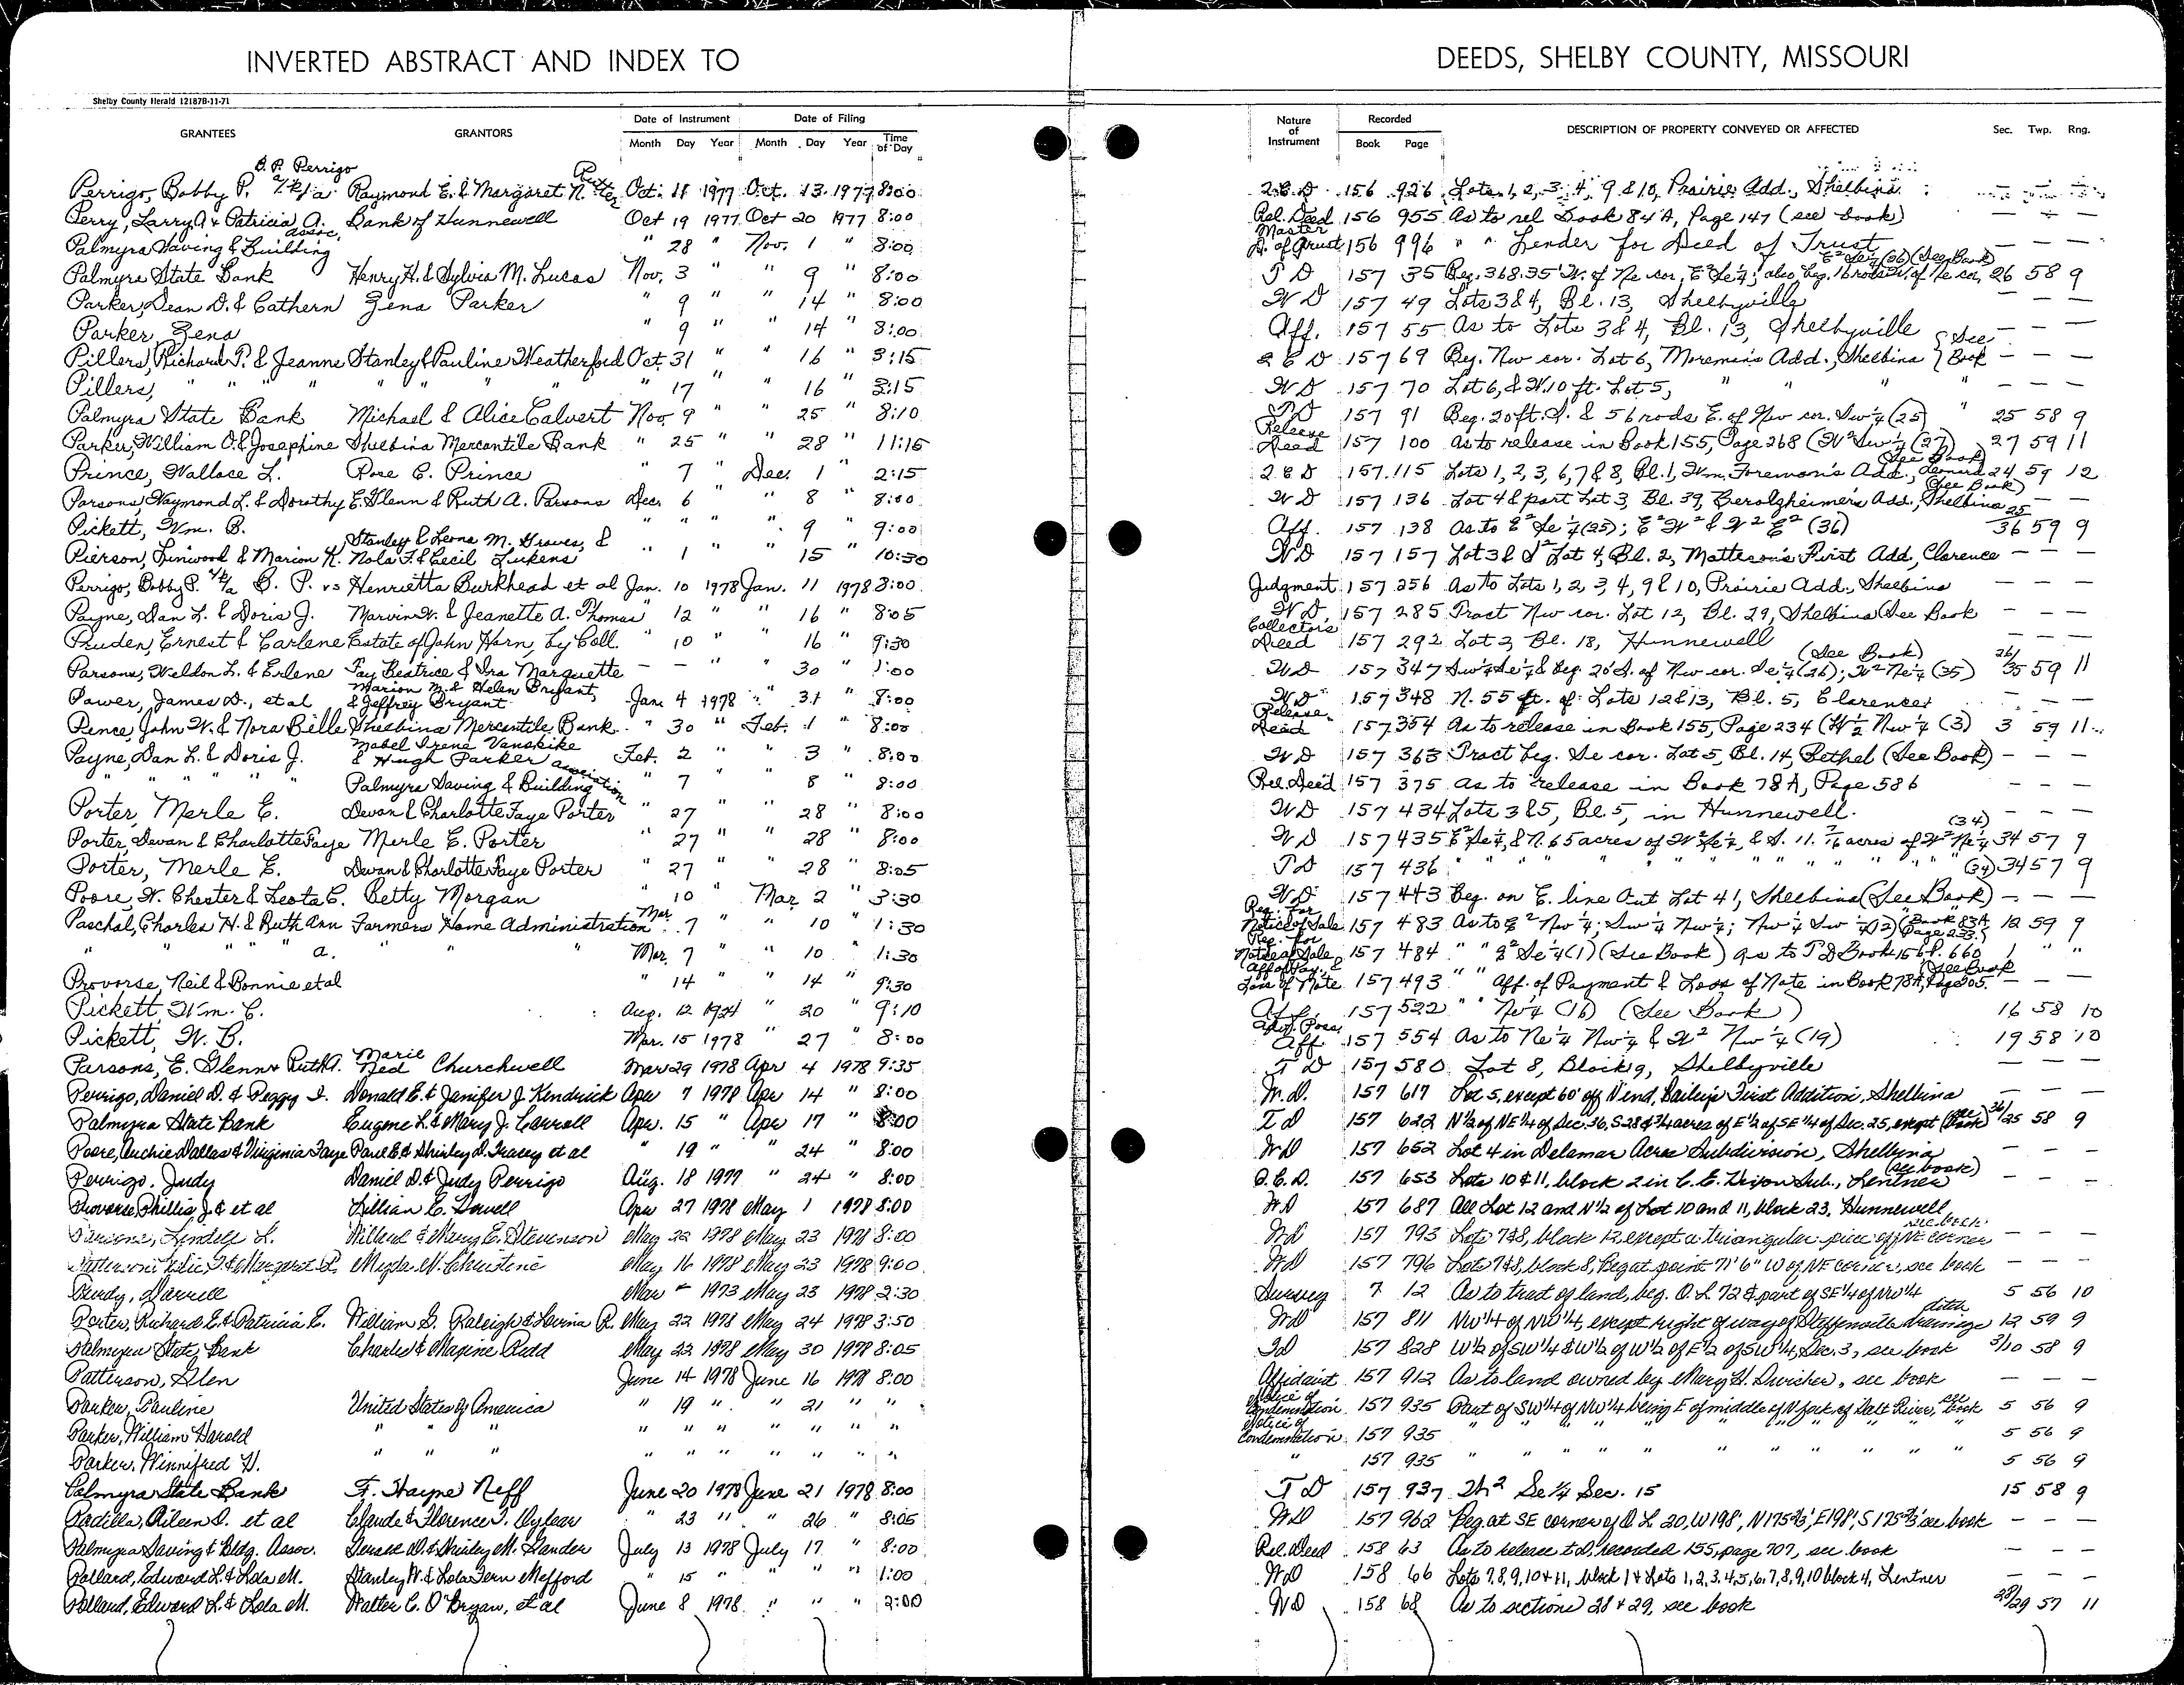 INVERTED ABSTRACT AND INDEX TO DEEDS, SHELBY COUNTY, MISSOURI
Shelby County Herald 12187B-11-71
GRANTEES GRANTORS Date of Instrument Month Day Year Date of Filing Month Day Year Time of Day Nature of Instrument Recorded Book Page DESCRIPTION OF PROPERTY CONVEYED OR AFFECTED Sec. Twp. Rng.
Perrigo, Bobby P. a/k/a B. P. Perrigo Raymond E. & Margaret N. Oct. 11 1977 Oct. 13 1977 8:00 2.C.D. 156 926 Lots 1, 2, 3, 4, 9 & 10, Prairie Add., Shelbina
Perry, Larry A. & Patricia A. Bank of Hunnewell Oct 19 1977 Oct 20 1977 8:00 Rel. Deed 156 955 As to rel Book 84A, Page 147 (see book) — — —
Palmyra Saving & Building Assoc. " 28 " Nov. 1 " 8:00 Master D. of Trust 156 996 " " Lender for Deed of Trust — — —
Palmyra State Bank Henry H. & Sylvia M. Lucas Nov. 3 " " 9 " 8:00 T D 157 35 Beg. 368.35' W. of Ne cor. E² Se¼; also beg. 16 rods W. of Ne cor. E² Se¼ (26) (See Book) 26 58 9
Parker, Dean D. & Cathern Zena Parker " 9 " " 14 " 8:00 W D 157 49 Lots 3 & 4, Bl. 13, Shelbyville — — —
Parker, Zena " 9 " " 14 " 8:00 Aff. 157 55 As to Lots 3 & 4, Bl. 13, Shelbyville — — —
Pillers, Richard P. & Jeanne Stanley & Pauline Weatherford Oct. 31 " " 16 " 3:15 2 C D 157 69 Beg. Nw cor. Lot 6, Moremen's Add., Shelbina { See Book — — —
Pillers, " " " " " " " 17 " " 16 " 3:15 W D 157 70 Lot 6, & W. 10 ft. Lot 5, " " " " — — —
Palmyra State Bank Michael & Alice Calvert Nov. 9 " " 25 " 8:10 T D 157 91 Beg. 20 ft. S. & 56 rods E. of Nw cor. Sw¼ (25) " 25 58 9
Parker, William O. & Josephine Shelbina Mercantile Bank " 25 " " 28 " 11:15 Release Deed 157 100 As to release in Book 155, Page 268 (W² Sw¼ (27) 27 59 11
Prince, Wallace L. Rose C. Prince " 7 " Dec. 1 " 2:15 2.C.D 157 115 Lots 1, 2, 3, 6, 7 & 8, Bl. 1, Wm. Foremon's Add., Leonard (See Book) 24 59 12
Parsons, Raymond L. & Dorothy E. Glenn & Ruth A. Parsons Dec. 6 " " 8 " 8:00 W D 157 136 Lot 4 & part Lot 3, Bl. 39, Berolzheimer's Add., Shelbina (See Book) — —
Pickett, Wm. B. " " " " 9 " 9:00 Aff. 157 138 As to E² Se¼ (25); E² W² & W² E² (36) 25 36 59 9
Pierson, Linwood & Marion K. Stanley & Leona M. Graves, & Nola F. & Cecil Lukens " 1 " " 15 " 10:30 W D 157 157 Lot 3 & S² Lot 4, Bl. 2, Matteson's First Add, Clarence — — —
Perrigo, Bobby P. a/k/a B. P. vs Henrietta Burkhead et al Jan. 10 1978 Jan. 11 1978 8:00 Judgment 157 256 As to Lots 1, 2, 3, 4, 9 & 10, Prairie Add., Shelbina — — —
Payne, Dan L. & Doris J. Marvin W. & Jeanette A. Thomas " 12 " " 16 " 8:05 W D 157 285 Tract Nw cor. Lot 12, Bl. 29, Shelbina (See Book — — —
Pruden, Ernest & Carlene Estate of John Horn, by Coll. " 10 " " 16 " 9:30 Collector's Deed 157 292 Lot 2, Bl. 18, Hunnewell — — —
Parsons, Weldon L. & Erlene Fay Beatrice & Ira Marquette — — " " 30 " 1:00 W D 157 347 Sw¼ Se¼ & Beg. 20' S. of Nw cor. Se¼ (26); W² Ne¼ (35) (See Book) 26/35 59 11
Power, James D., et al Marion M. & Helen Bryant, & Jeffrey Bryant Jan. 4 1978 " 31 " 8:00 W D 157 348 N. 55 ft. of Lots 12 & 13, Bl. 5, Clarence — — —
Pence, John W. & Nora Belle Shelbina Mercantile Bank " 30 " Feb. 1 " 8:00 Release Deed 157 354 As to release in Book 155, Page 234 (W½ Nw¼ (3) 3 59 11
Payne, Dan L. & Doris J. Mabel Irene Vanskike & Hugh Parker Feb. 2 " " 3 " 8:00 W D 157 363 Tract beg. Se cor. Lot 5, Bl. 14, Bethel (See Book) — — —
" " " " " Palmyra Saving & Building Association " 7 " " 8 " 8:00 Rel. Deed 157 375 As to release in Book 78A, Page 586 — — —
Porter, Merle E. Devan & Charlotte Faye Porter " 27 " " 28 " 8:00 W D 157 434 Lots 3 & 5, Bl. 5, in Hunnewell. — — —
Porter, Devan & Charlotte Faye Merle E. Porter " 27 " " 28 " 8:00 W D 157 435 E² Se¼, & N. 65 acres of W² Se¼, & S. 11 acres of W² Ne¼ (34) 34 57 9
Porter, Merle E. Devan & Charlotte Faye Porter " 27 " " 28 " 8:05 T D 157 436 " " " " " " " (34) 34 57 9
Poore, W. Chester & Leota C. Betty Morgan " 10 " Mar 2 " 3:30 W D 157 443 Beg. on E. line Out Lot 41, Shelbina (See Book) — — —
Paschal, Charles H. & Ruth Ann Farmers Home Administration Mar. 7 " " 10 " 1:30 Req. For Notice of Sale 157 483 As to E² Nw¼; Sw¼ Nw¼; Nw¼ Sw¼ (12) (Book 83A Page 233) 12 59 9
" " " " a. " " Mar. 7 " " 10 " 1:30 Req. for Notice of Sale 157 484 " " Se¼ (1) (See Book) as to T D Book 156 P. 660 1 " "
Provorse, Neil & Bonnie et al " 14 " " 14 " 9:30 Aff. of Pay. & Loss of Note 157 493 " " Aff. of Payment & Loss of Note in Book 78A, Page 205 (See Book — —
Pickett, Wm. C. Aug. 12 1924 " 20 " 9:10 Aff. 157 522 " " Ne¼ (16) (See Book) 16 58 10
Pickett, W. B. Mar. 15 1978 " 27 " 8:00 Poss. Aff. 157 554 As to Ne¼ Nw¼ & W² Nw¼ (19) 19 58 10
Parsons, E. Glenn & Ruth A. Marie Ned Churchwell Mar 29 1978 Apr 4 1978 9:35 T D 157 580 Lot 8, Block 9, Shelbyville — — —
Perrigo, Daniel D. & Peggy I. Donald E. & Jenifer J. Kendrick Apr 7 1978 Apr 14 " 8:00 W.D. 157 617 Lot 5, except 60' off N end, Bailey's First Addition, Shelbina — — —
Palmyra State Bank Eugene L. & Mary J. Carroll Apr. 15 " Apr 17 " 8:00 T D 157 622 N½ of NE¼ of Sec. 36, S 28 & ¾ acres of E½ of SE¼ of Sec. 25, except (see book) 36/25 58 9
Poore, Archie Dallas & Virginia Faye Paul E. & Shirley D. Tracey et al " 19 " " 24 " 8:00 W D 157 652 Lot 4 in Delamar Acres Subdivision, Shelbina — — —
Perrigo, Judy Daniel D. & Judy Perrigo Aug. 18 1977 " 24 " 8:00 Q.C.D. 157 653 Lots 10 & 11, block 2 in C. C. Dixon Sub., Lentner (see book) — — —
Provorse, Phillis J. & et al Lillian C. Dowell Apr 27 1978 May 1 1978 8:00 W D 157 687 All Lot 12 and N½ of Lot 10 and 11, block 23, Hunnewell
Parsons, Lindell L. Willard & Mary E. Stevenson May 22 1978 May 23 1978 8:00 W D 157 793 Lots 7 & 8, block 12 except a triangular piece of NE corner see book — — —
Patterson, & Margaret L. M. Christine May 16 1978 May 23 1978 9:00 W D 157 796 Lots 7 & 8, block 8, Beg at point 71' 6" W of NE corner, see book — — —
Purdy, Darrell Mar — 1973 May 23 1978 2:30 Survey 7 12 As to tract of land, beg. O. L. 72 & part of SE¼ of NW¼ 5 56 10
Porter, Richard E. & Patricia E. William G. Raleigh & Lavina R. May 22 1978 May 24 1978 3:50 W D 157 811 NW¼ of NW¼, except right of way of Steffenville drainage ditch 12 59 9
Palmyra State Bank Charles & Maxine Redd May 22 1978 May 30 1978 8:05 T D 157 828 W½ of SW¼ & W½ of W½ of E½ of SW¼ Sec. 3, see book 3/10 58 9
Patterson, Glen June 14 1978 June 16 1978 8:00 Affidavit 157 912 As to land owned by Mary H. see book — — —
Parker, Pauline United States of America " 19 " " 21 " " Notice of Condemnation 157 935 Part of SW¼ of NW¼ being E of middle of N fork of Salt River, see book 5 56 9
Parker, William Harold " " " " " " " " " " Notice of Condemnation 157 935 " " " " " " " " 5 56 9
Parker, Winnifred H. " " " " " " " " 157 935 " " " " " " " " 5 56 9
Palmyra State Bank F. Wayne Neff June 20 1978 June 21 1978 8:00 T D 157 937 W² Se¼ Sec. 15 15 58 9
Padilla, Aileen D. et al Claude & Florence T. " 23 " " 26 " 8:05 W D 157 962 Beg. at SE corner of O. L. 20, W 198', N 175⅔', E 198', S 175⅔' see book — — —
Palmyra Saving & Bldg. Assoc. Gerald D. & Shirley M. Gander July 13 1978 July 17 " 8:00 Rel. Deed 158 63 As to release t d, recorded 155, page 707, see book — — —
Pollard, Edward L. & Lola M. Stanley W. & Lola Fern Mefford " 15 " " " " 1:00 W D 158 66 Lots 7, 8, 9, 10 & 11, block 1 & Lots 1, 2, 3, 4, 5, 6, 7, 8, 9, 10 block 4, Lentner — — —
Polland, Edward L. & Lola M. Walter C. O'Bryan, et al June 8 1978 " " " 2:00 W D 158 68 As to sections 28 & 29, see book 28/29 57 11